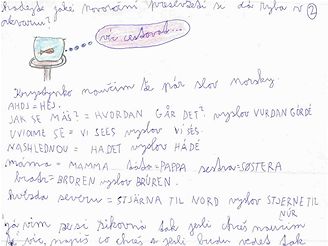 hádejte jaké novoroční předsevzetí si dá ryba v
akvariu?
2
víc cestovat...
Krystýnko naučím tě pár slov norsky
AHOJ = HEJ.
JAK SE MÁŠ? = HVORDAN GÅR DET? vyslov VURDAN GÓRDÉ
UVIDÍME SE = VI SEES vyslov VI SÉS.
NASHLEDNOU = HADET vyslov HÁDÉ
máma = MAMMA táta = PAPPA sestra = SØSTERA
bratr = BROREN vyslov BRŮREN.
hvězda severu = STJÄRNA TIL NORD vyslov STJERNE TIL
NÚR
já vím že si šikovná tak jeli chceš naučím
napiš co chceš a jeli budu vědět tak